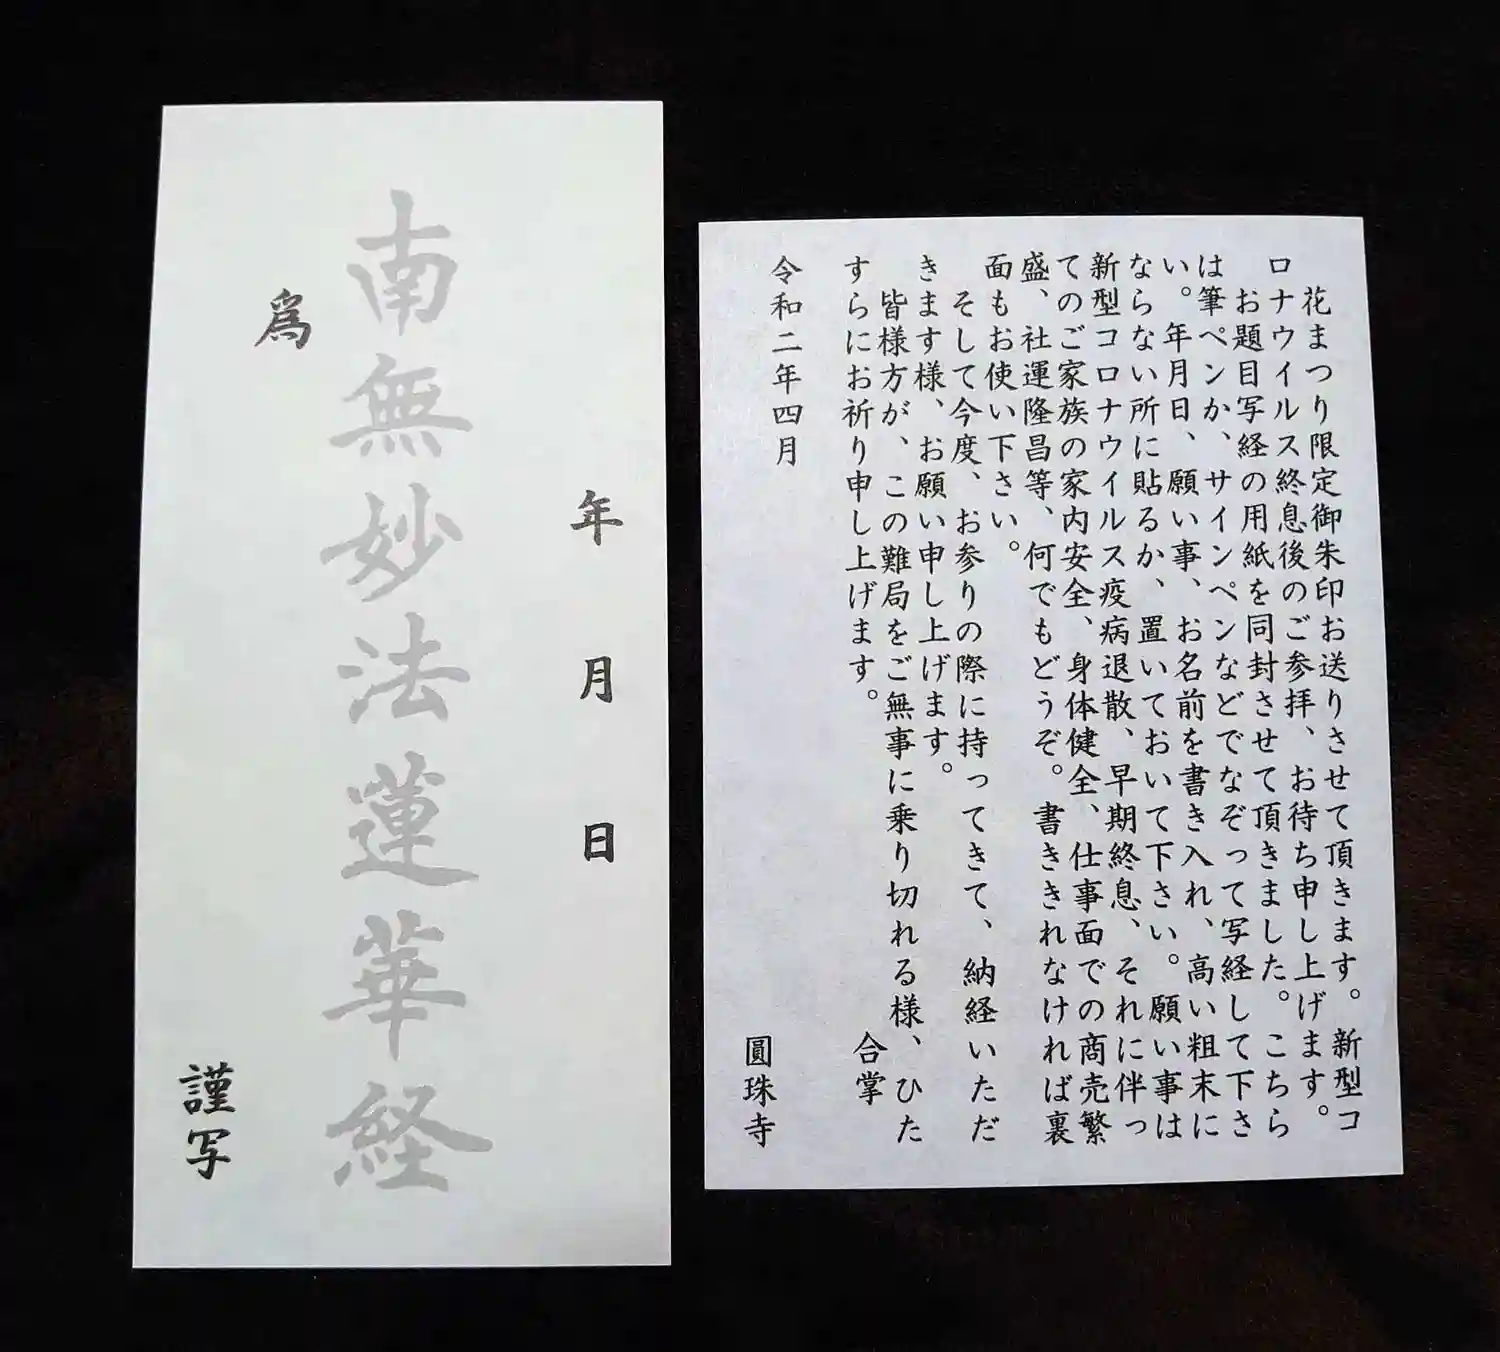 年月日
南無妙法蓮華経
爲
謹写
花まつり限定御朱印お送りさせて頂きます。新型コ
ロナウイルス終息後のご参拝、お待ち申し上げます。
お題目写経の用紙を同封させて頂きました。こちら
は筆ペンか、サインペンなどでなぞって写経して下さ
い。年月日、願い事、お名前を書き入れ、高い粗末に
ならない所に貼るか、置いておいて下さい。願い事は
新型コロナウイルス疫病退散、早期終息、それに伴っ
てのご家族の家内安全、身体健全、仕事面での商売繁
盛、社運隆昌等、何でもどうぞ。書ききれなければ裏
面もお使い下さい。
そして今度、お参りの際に持ってきて、納経いただ
きます様、お願い申し上げます。
皆様方が、この難局をご無事に乗り切れる様、ひた
すらにお祈り申し上げます。
合掌
令和二年四月
圓珠寺